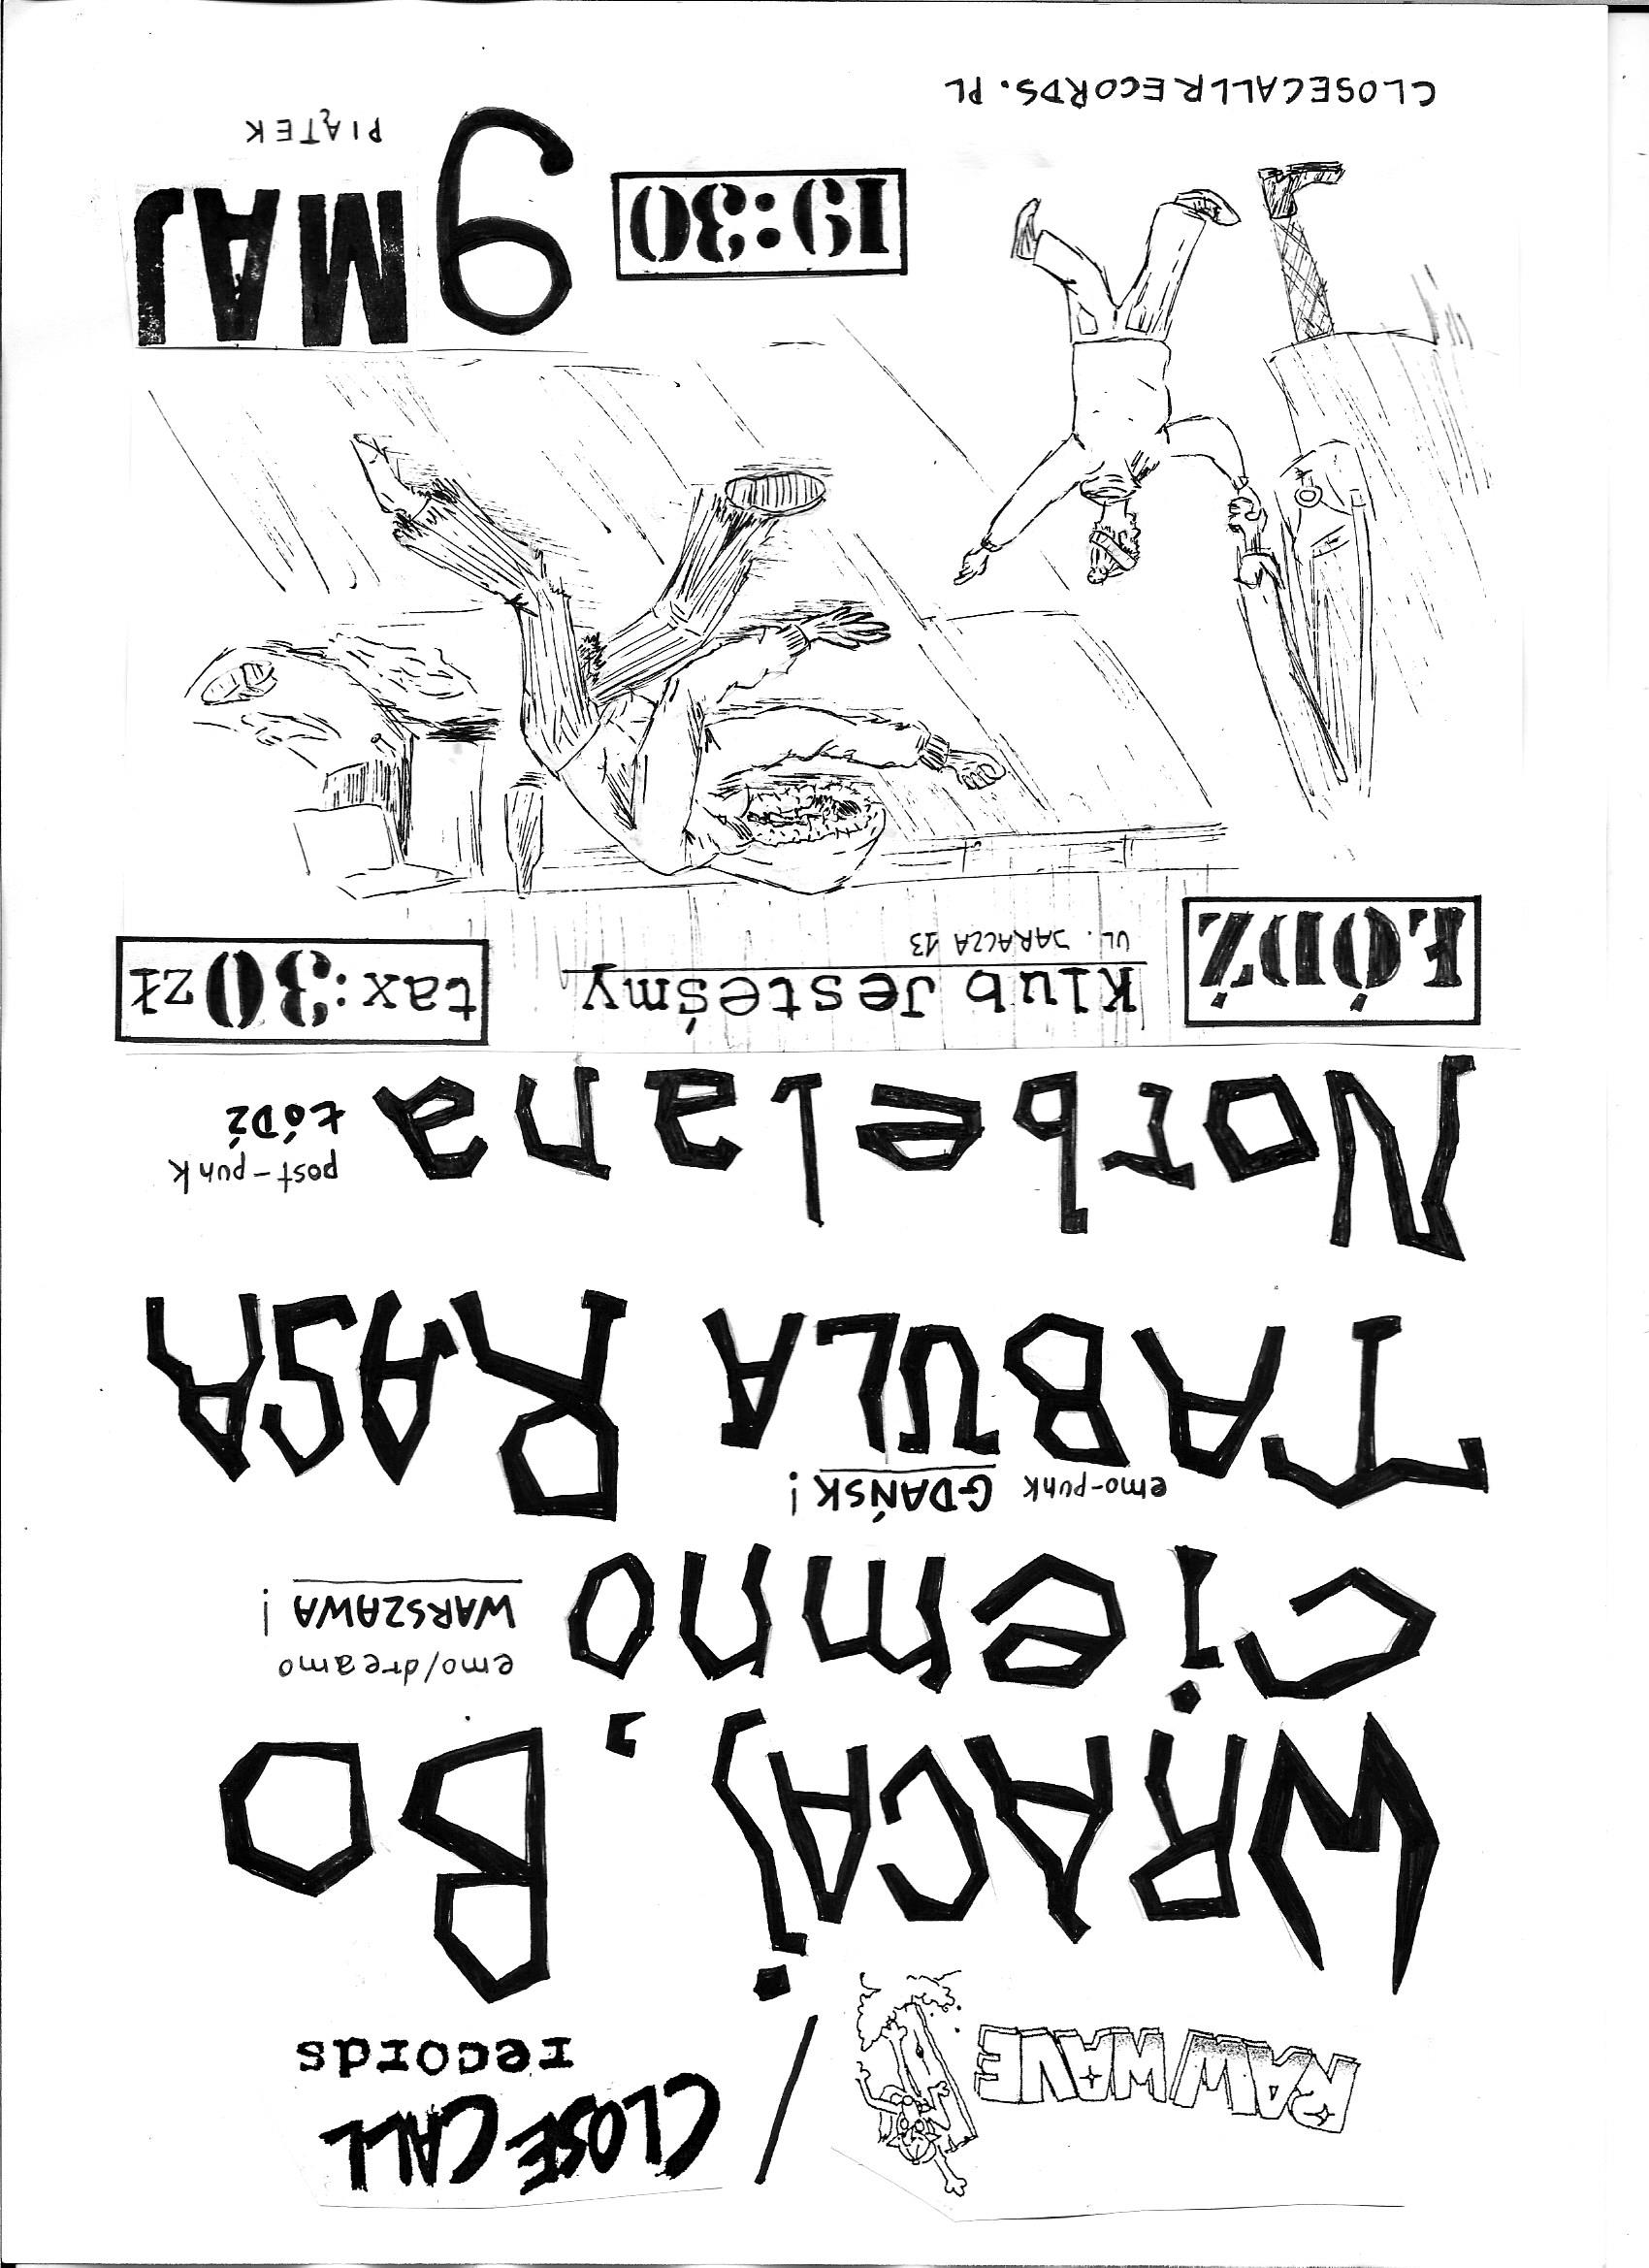 RAW WAVE / CLOSE CALL
records
WRACAJ, BO
ciemno
emo/dreamo
WARSZAWA!
emo-punk GDAŃSK!
TABULA RASA
Norbelana
post-punk
ŁÓDŹ
ŁÓDŹ
Klub Jesteśmy
UL. JARACZA 13
tax: 30 zł
19:30
9 MAJ
PIĄTEK
CLOSECALLRECORDS.PL